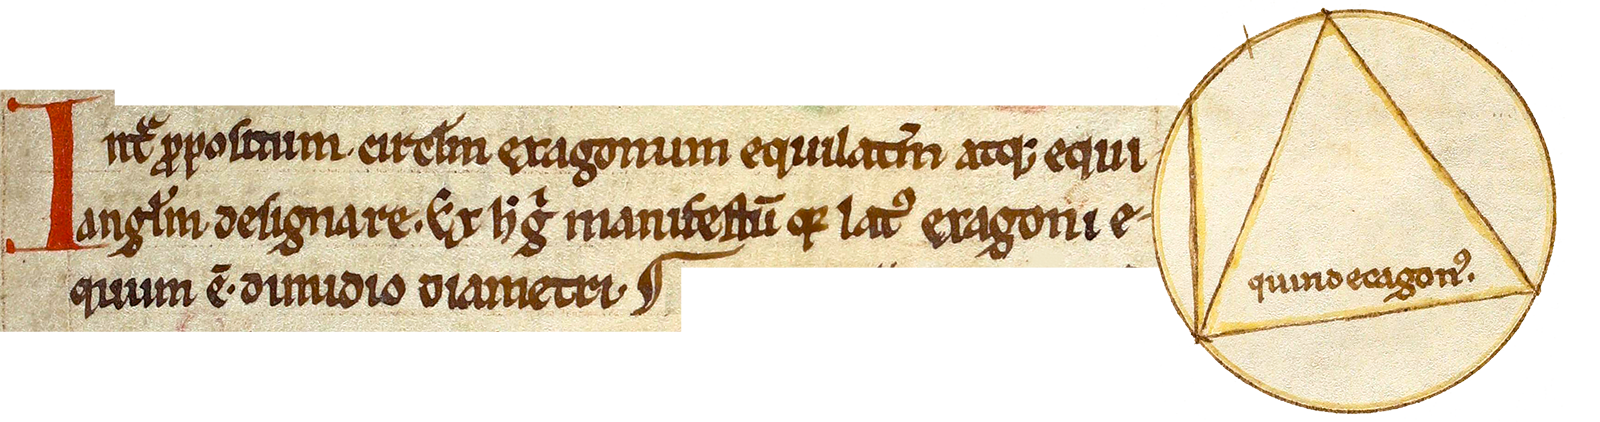 Int͛ p̄positum circl̄m exagonum equilat̄m atq; equi
angl̄m designare. Ex h̄ g̊ manifestū qđ latꝰ exagoni e-
quum ē. dimidio diametri. ¶
quindecagonꝰ.